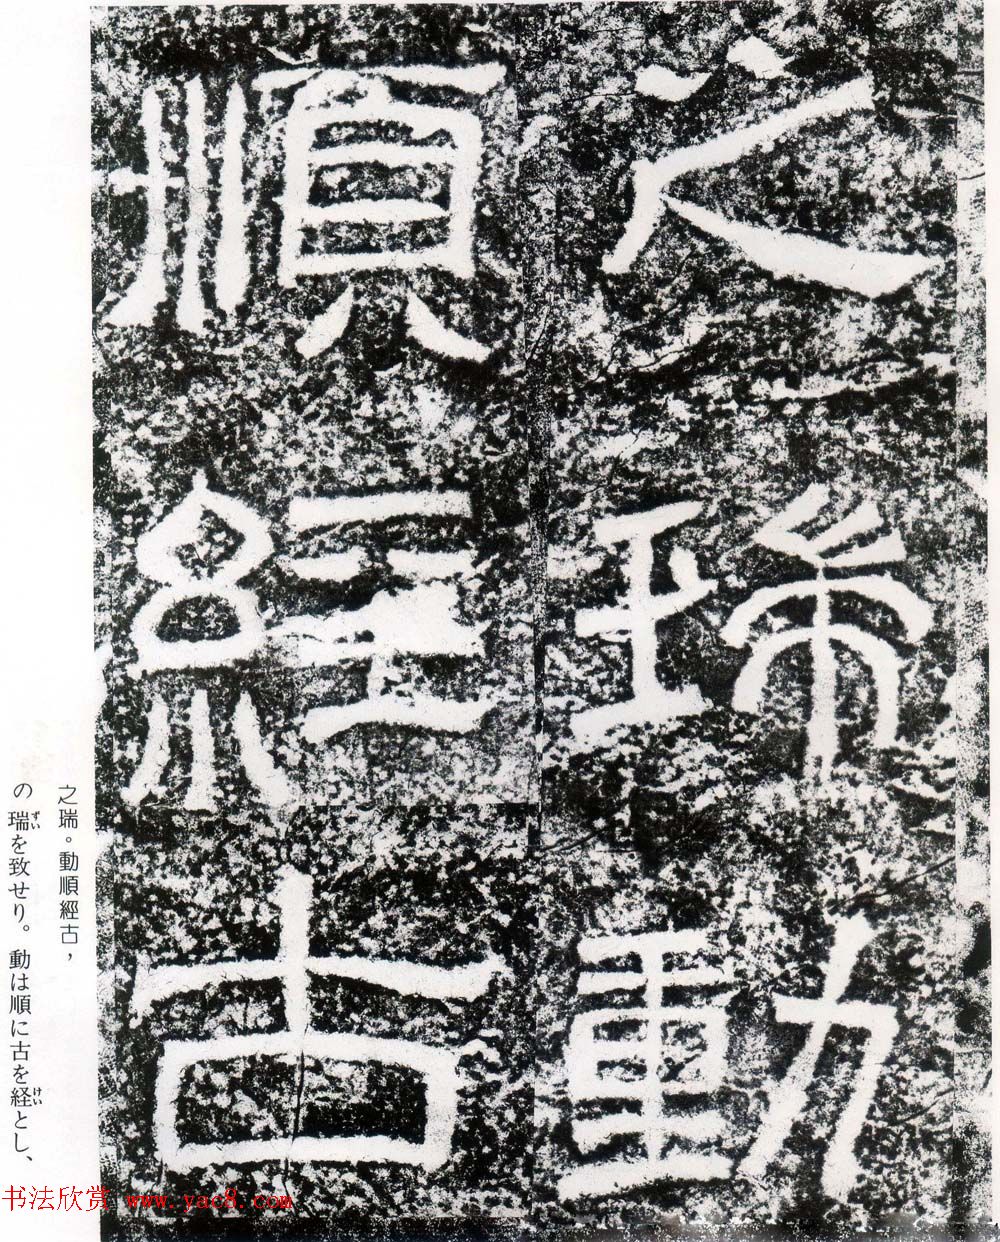 之瑞動
順經古
之瑞。動順經古，
の瑞を致せり。動は順に古を経とし、
ずい
けい
书法欣赏 www.yac8.com